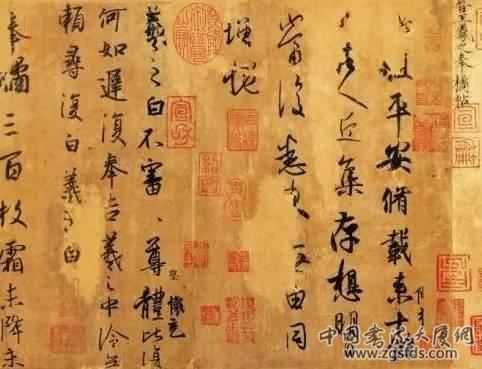 晉王羲之奉橘帖
此粗平安脩載來十餘
諸人近集存想明
當復悉來無由同
增慨
羲之白不審尊體比復
察 懷充
何如遲復奉告羲之中冷無
賴尋復白羲之白
奉橘三百枚霜未降未
中国书法大厦网
www.zgsfds.com